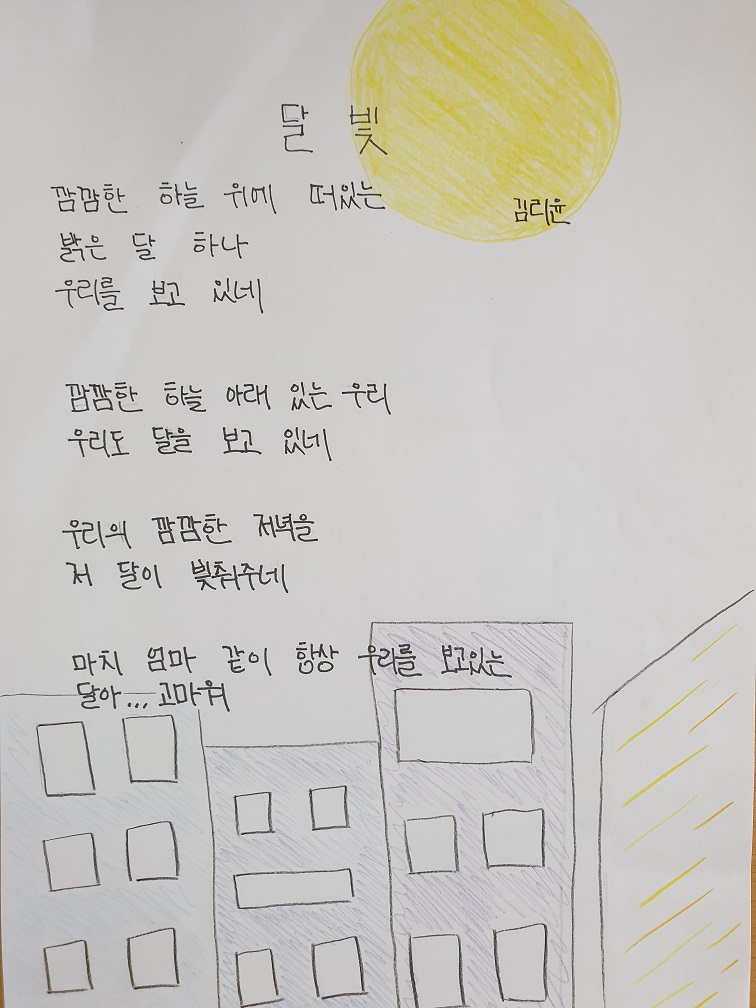 달 빛
김리윤
깜깜한 하늘 위에 떠있는
밝은 달 하나
우리를 보고 있네
깜깜한 하늘 아래 있는 우리
우리도 달을 보고 있네
우리의 깜깜한 저녁을
저 달이 빛춰주네
마치 엄마 같이 항상 우리를 보고있는
달아... 고마워